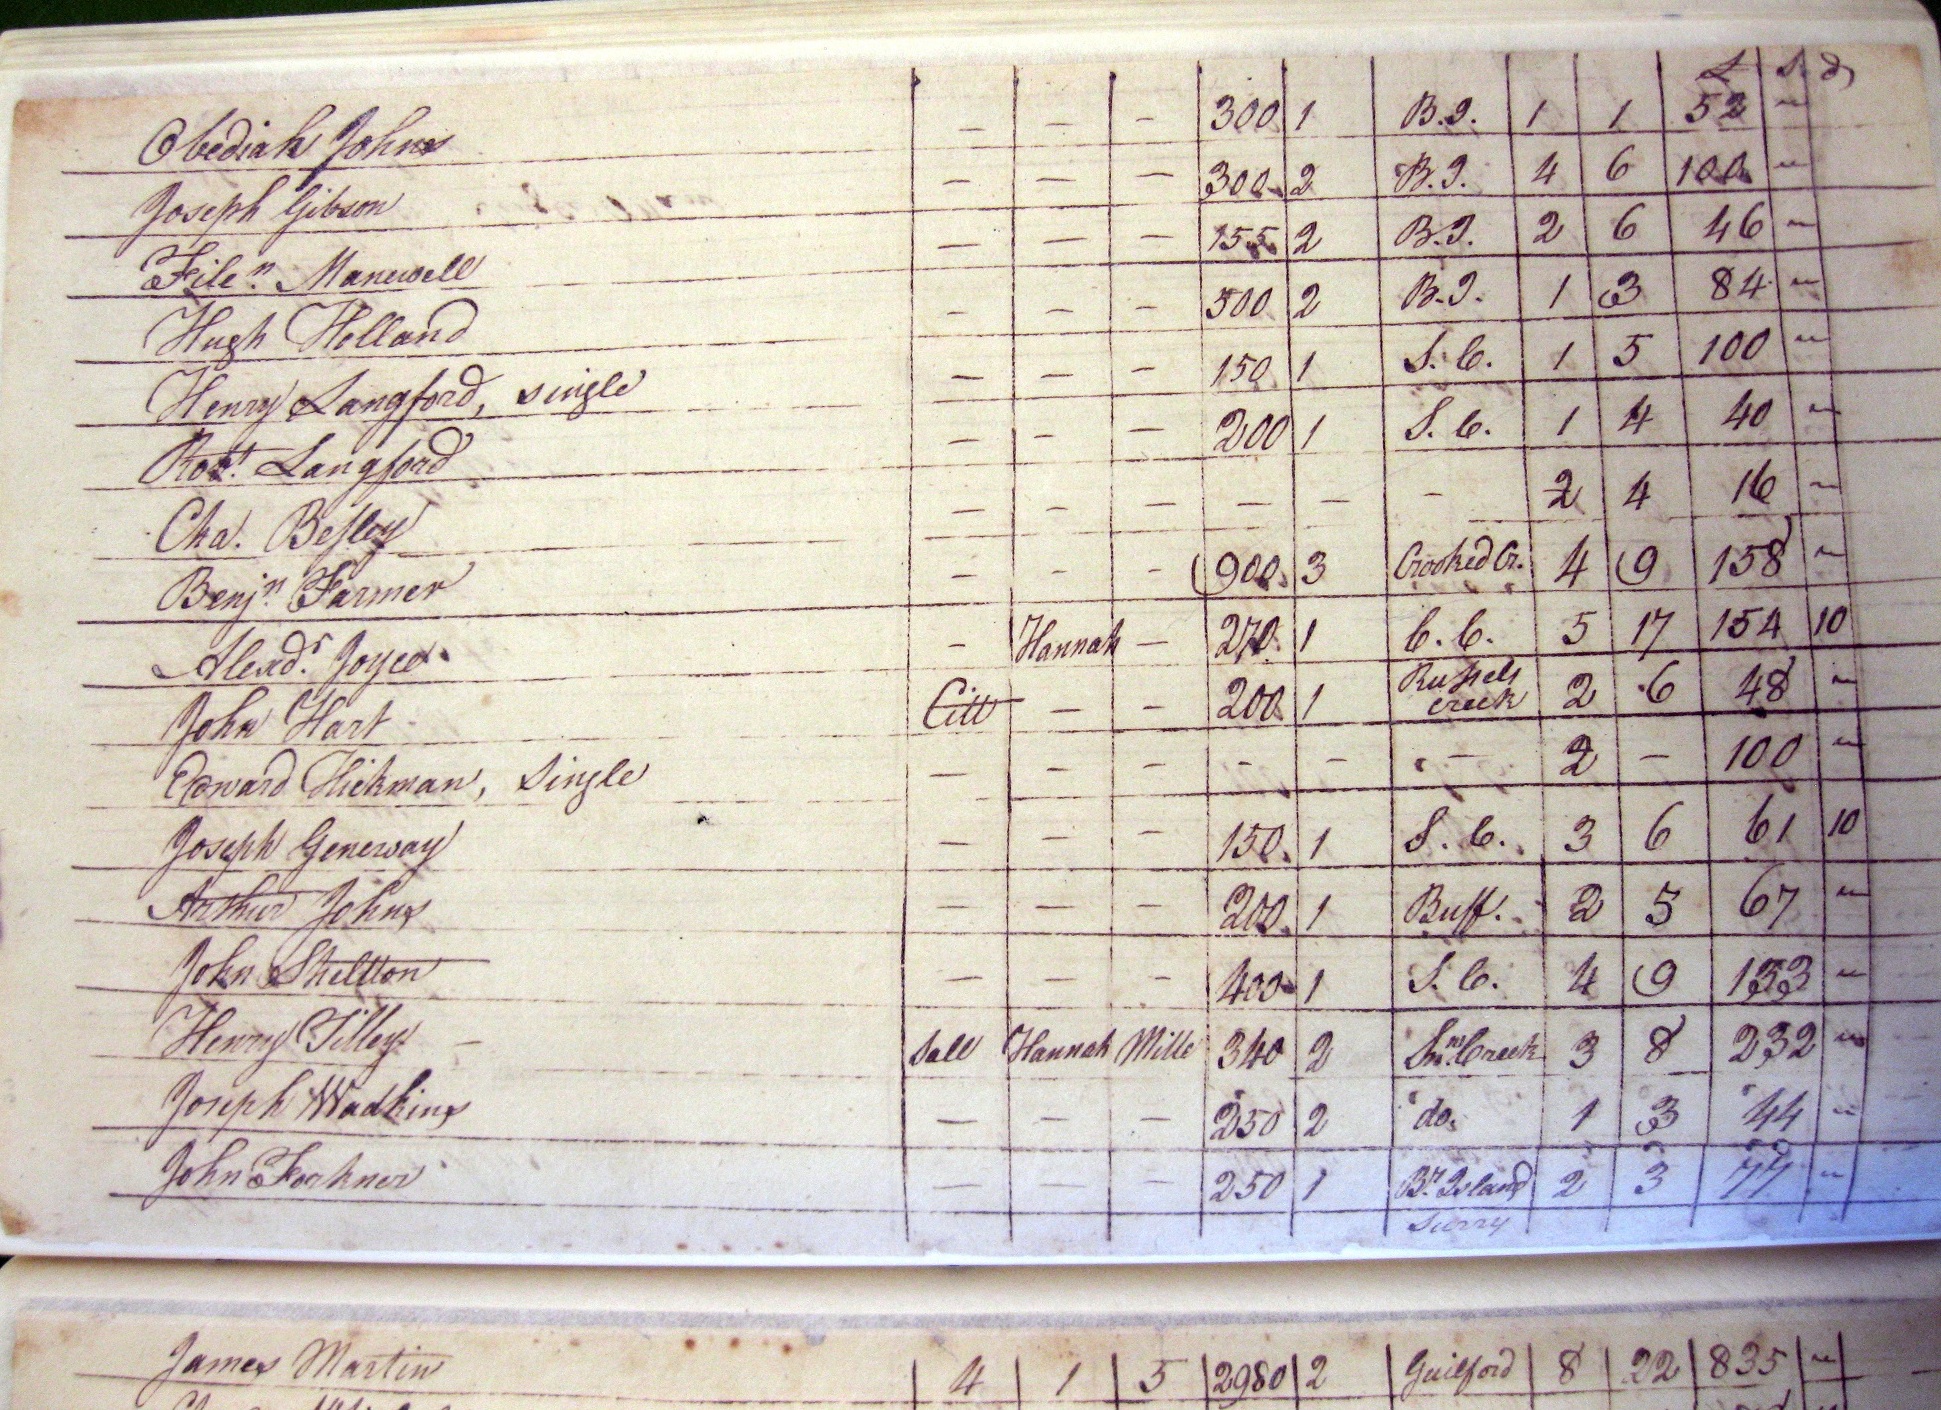 £ S. d
Obediah Johns — — — 300 1 B.I. 1 1 52 "
Joseph Gibson — — — 300 2 B.I. 4 6 100 "
Manewell — — — 155 2 B.I. 2 6 46 "
Hugh Holland — — — 500 2 B.I. 1 3 84 "
Henry Langford, single — — — 150 1 S.C. 1 5 100 "
Robt. Langford — — — 200 1 S.C. 1 4 40 "
Cha. — — — — — — 2 4 16 "
Benjn. Farmer — — — 900 3 Crooked Cr. 4 9 158 "
Alexdr. Joyce — Hannah — 270 1 C.C. 5 17 154 10
John Hart Citt — — 200 1 Russels creek 2 6 48 "
Edward Hickman, single — — — — — — 2 — 100 "
Joseph Geneway — — — 150 1 S.C. 3 6 61 10
Arthur Johns — — — 200 1 Buff. 2 5 67 "
John Shelton — — — 400 1 S.C. 4 9 133 "
Henry Tilley — Sall Hannah Mille 340 2 Creek 3 8 232 "
Joseph Wadkins — — — 250 2 do. 1 3 44 "
John Forkner — — — 250 1 Br. Island 2 3 77 "
Surry
James Martin 4 1 5 2980 2 Guilford 8 22 835 "